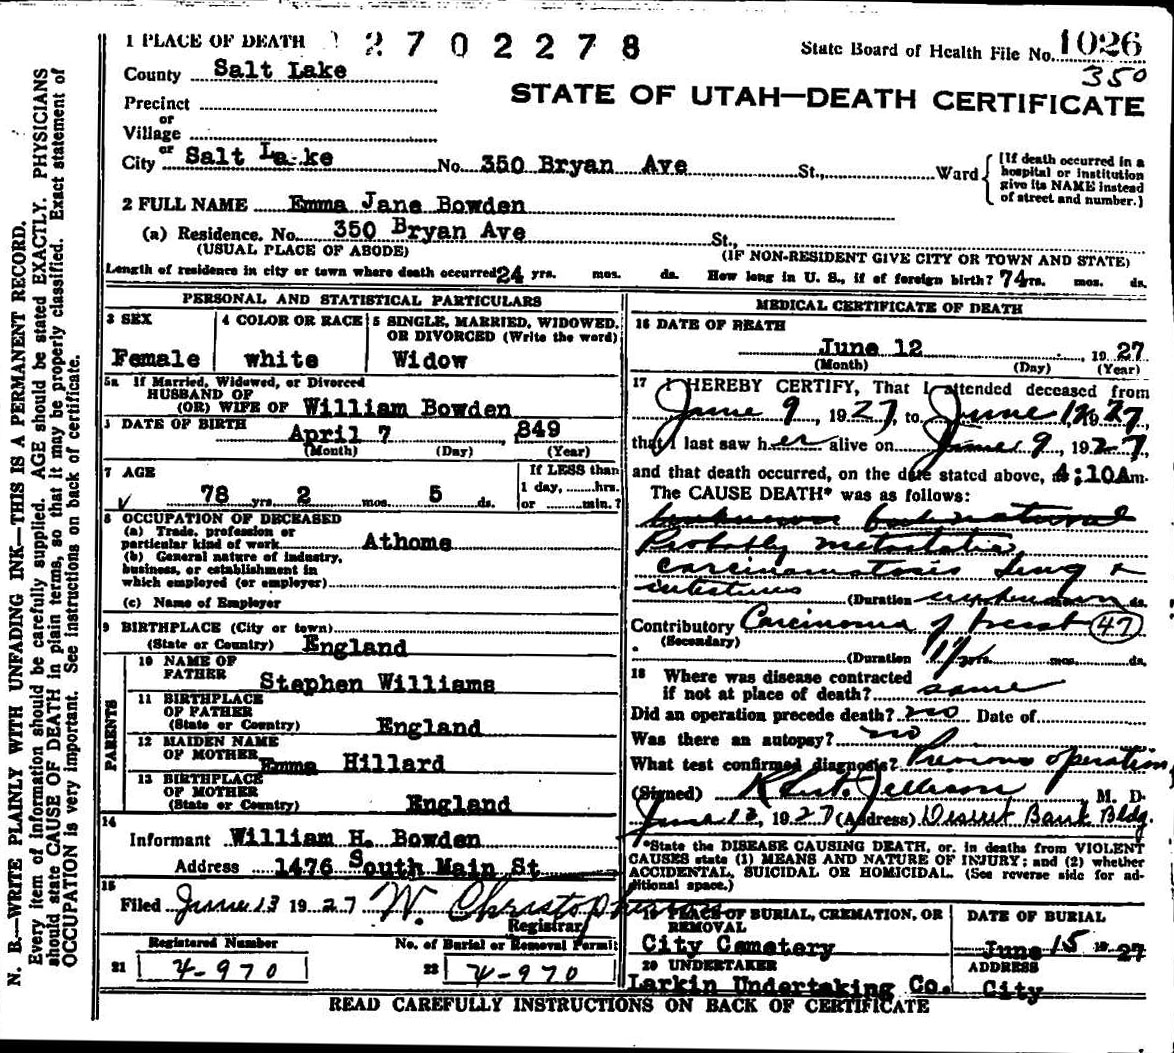 1 PLACE OF DEATH 2 7 0 2 2 7 8 State Board of Health File No. 1026
350
County Salt Lake
STATE OF UTAH—DEATH CERTIFICATE
Precinct
or
Village
or
City Salt Lake No. 350 Bryan Ave St., Ward
[If death occurred in a hospital or institution give its NAME instead of street and number.]
2 FULL NAME Emma Jane Bowden
(a) Residence. No. 350 Bryan Ave St.,
(USUAL PLACE OF ABODE) (IF NON-RESIDENT GIVE CITY OR TOWN AND STATE)
Length of residence in city or town where death occurred 24 yrs. mos. ds. How long in U. S., if of foreign birth? 74 yrs. mos. ds.
PERSONAL AND STATISTICAL PARTICULARS
3 SEX 4 COLOR OR RACE 5 SINGLE, MARRIED, WIDOWED,
OR DIVORCED (Write the word)
Female white Widow
5a If Married, Widowed, or Divorced
HUSBAND OF
(OR) WIFE OF William Bowden
DATE OF BIRTH April 7 849
(Month) (Day) (Year)
7 AGE If LESS than
1 day, ........hrs.
78 yrs. 2 mos. 5 ds. or ........min.?
8 OCCUPATION OF DECEASED
(a) Trade, profession or
particular kind of work Athome
(b) General nature of industry,
business, or establishment in
which employed (or employer)
(c) Name of Employer
9 BIRTHPLACE (City or town)
(State or Country) England
PARENTS
10 NAME OF
FATHER Stephen Williams
11 BIRTHPLACE
OF FATHER
(State or Country) England
12 MAIDEN NAME
OF MOTHER Emma Hillard
13 BIRTHPLACE
OF MOTHER
(State or Country) England
14
Informant William H. Bowden
Address 1476 South Main St
15
Filed June 13 1927 W. Christopherson
Registrar
Registered Number No. of Burial or Removal Permit
21 4-970 22 4-970
MEDICAL CERTIFICATE OF DEATH
16 DATE OF DEATH
June 12, 1927
(Month) (Day) (Year)
17 I HEREBY CERTIFY, That I attended deceased from
June 9, 1927, to June 12 1927
that I last saw her alive on June 9, 1927,
and that death occurred, on the date stated above, 4:10Am.
The CAUSE DEATH* was as follows:
Probably metastatic
carcinomatosis Lung &
intestines (Duration unknown ds.
Contributory Carcinoma of breast 47
(Secondary)
(Duration yrs. mos. ds.
18 Where was disease contracted
if not at place of death? same
Did an operation precede death? no Date of
Was there an autopsy? no
What test confirmed diagnosis? Previous operation
(Signed) Jellison M. D.
June 13, 1927 (Address) Deseret Bank Bldg.
*State the DISEASE CAUSING DEATH, or, in deaths from VIOLENT
CAUSES state (1) MEANS AND NATURE OF INJURY; and (2) whether
ACCIDENTAL, SUICIDAL OR HOMICIDAL. (See reverse side for ad-
ditional space.)
19 PLACE OF BURIAL, CREMATION, OR
REMOVAL DATE OF BURIAL
City Cemetery June 15 1927
20 UNDERTAKER ADDRESS
Larkin Undertaking Co. City
READ CAREFULLY INSTRUCTIONS ON BACK OF CERTIFICATE
N. B.—WRITE PLAINLY WITH UNFADING INK—THIS IS A PERMANENT RECORD.
Every item of information should be carefully supplied. AGE should be stated EXACTLY. PHYSICIANS
should state CAUSE OF DEATH in plain terms, so that it may be properly classified. Exact statement of
OCCUPATION is very important. See instructions on back of certificate.